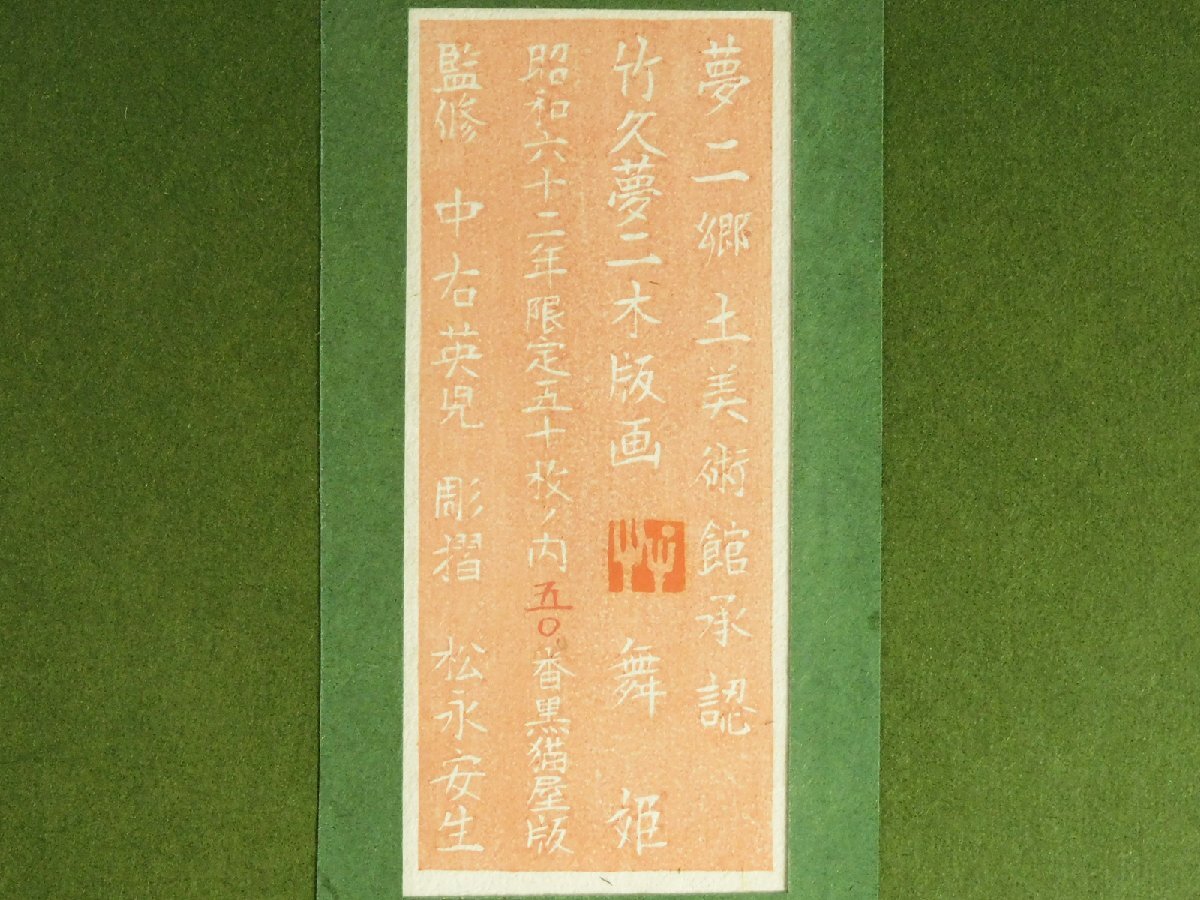 夢二郷土美術館承認
竹久夢二木版画 舞姫
昭和六十二年限定五十枚ノ内五〇番黒猫屋版
監修 中右英児 彫摺 松永安生